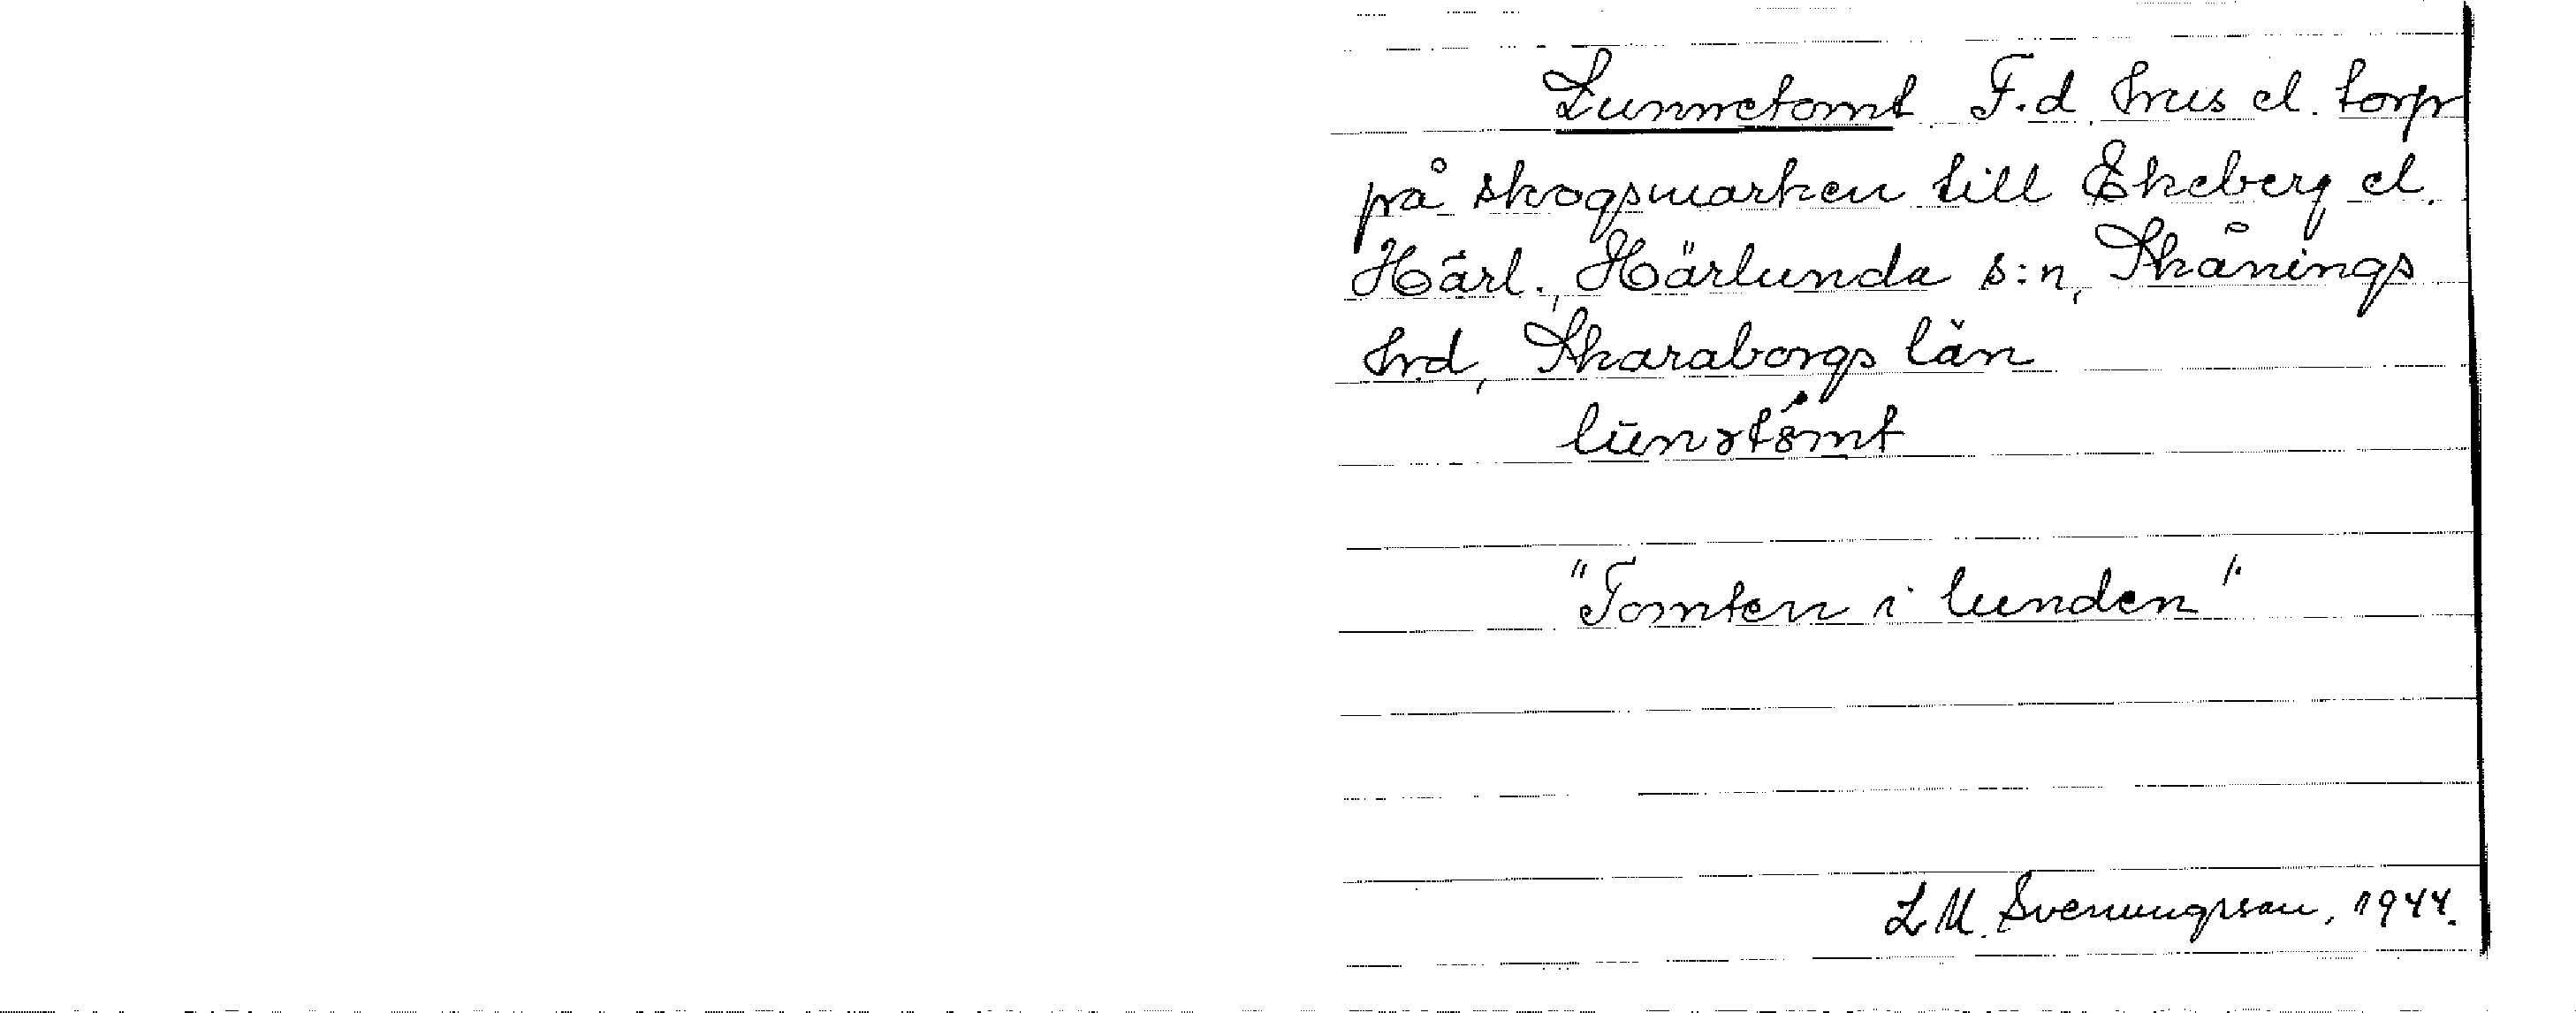 Lunnetomt F.d. hus el. torp
på skogsmarken till Ekeberg el.
Härl., Härlunda s:n, Skånings
hrd, Skaraborgs län
"Tomten i lunden".
L M. Svenungsson, 1944.